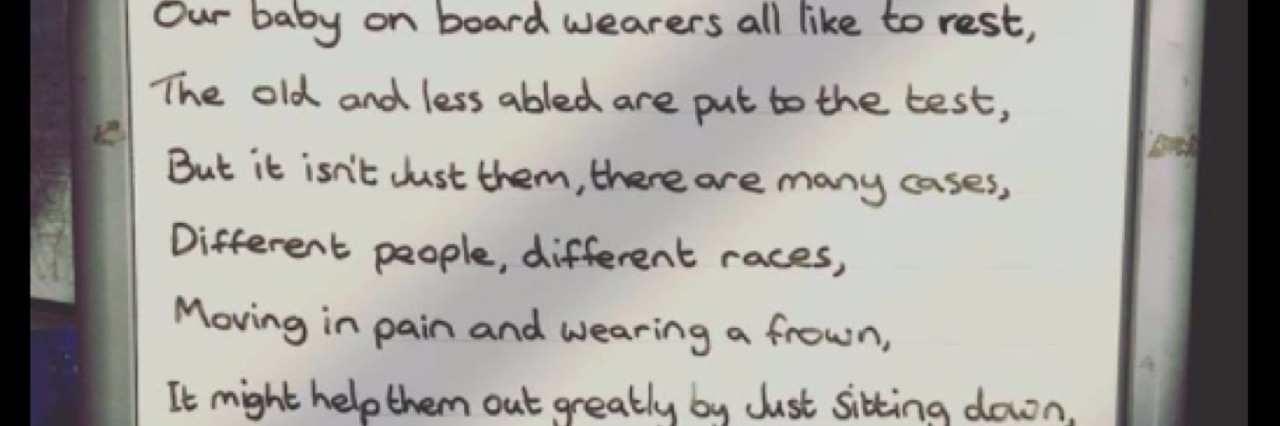 Our baby on board wearers all like to rest,
The old and less abled are put to the test,
But it isn't Just them, there are many cases,
Different people, different races,
Moving in pain and wearing a frown,
It might help them out greatly by Just sitting down,